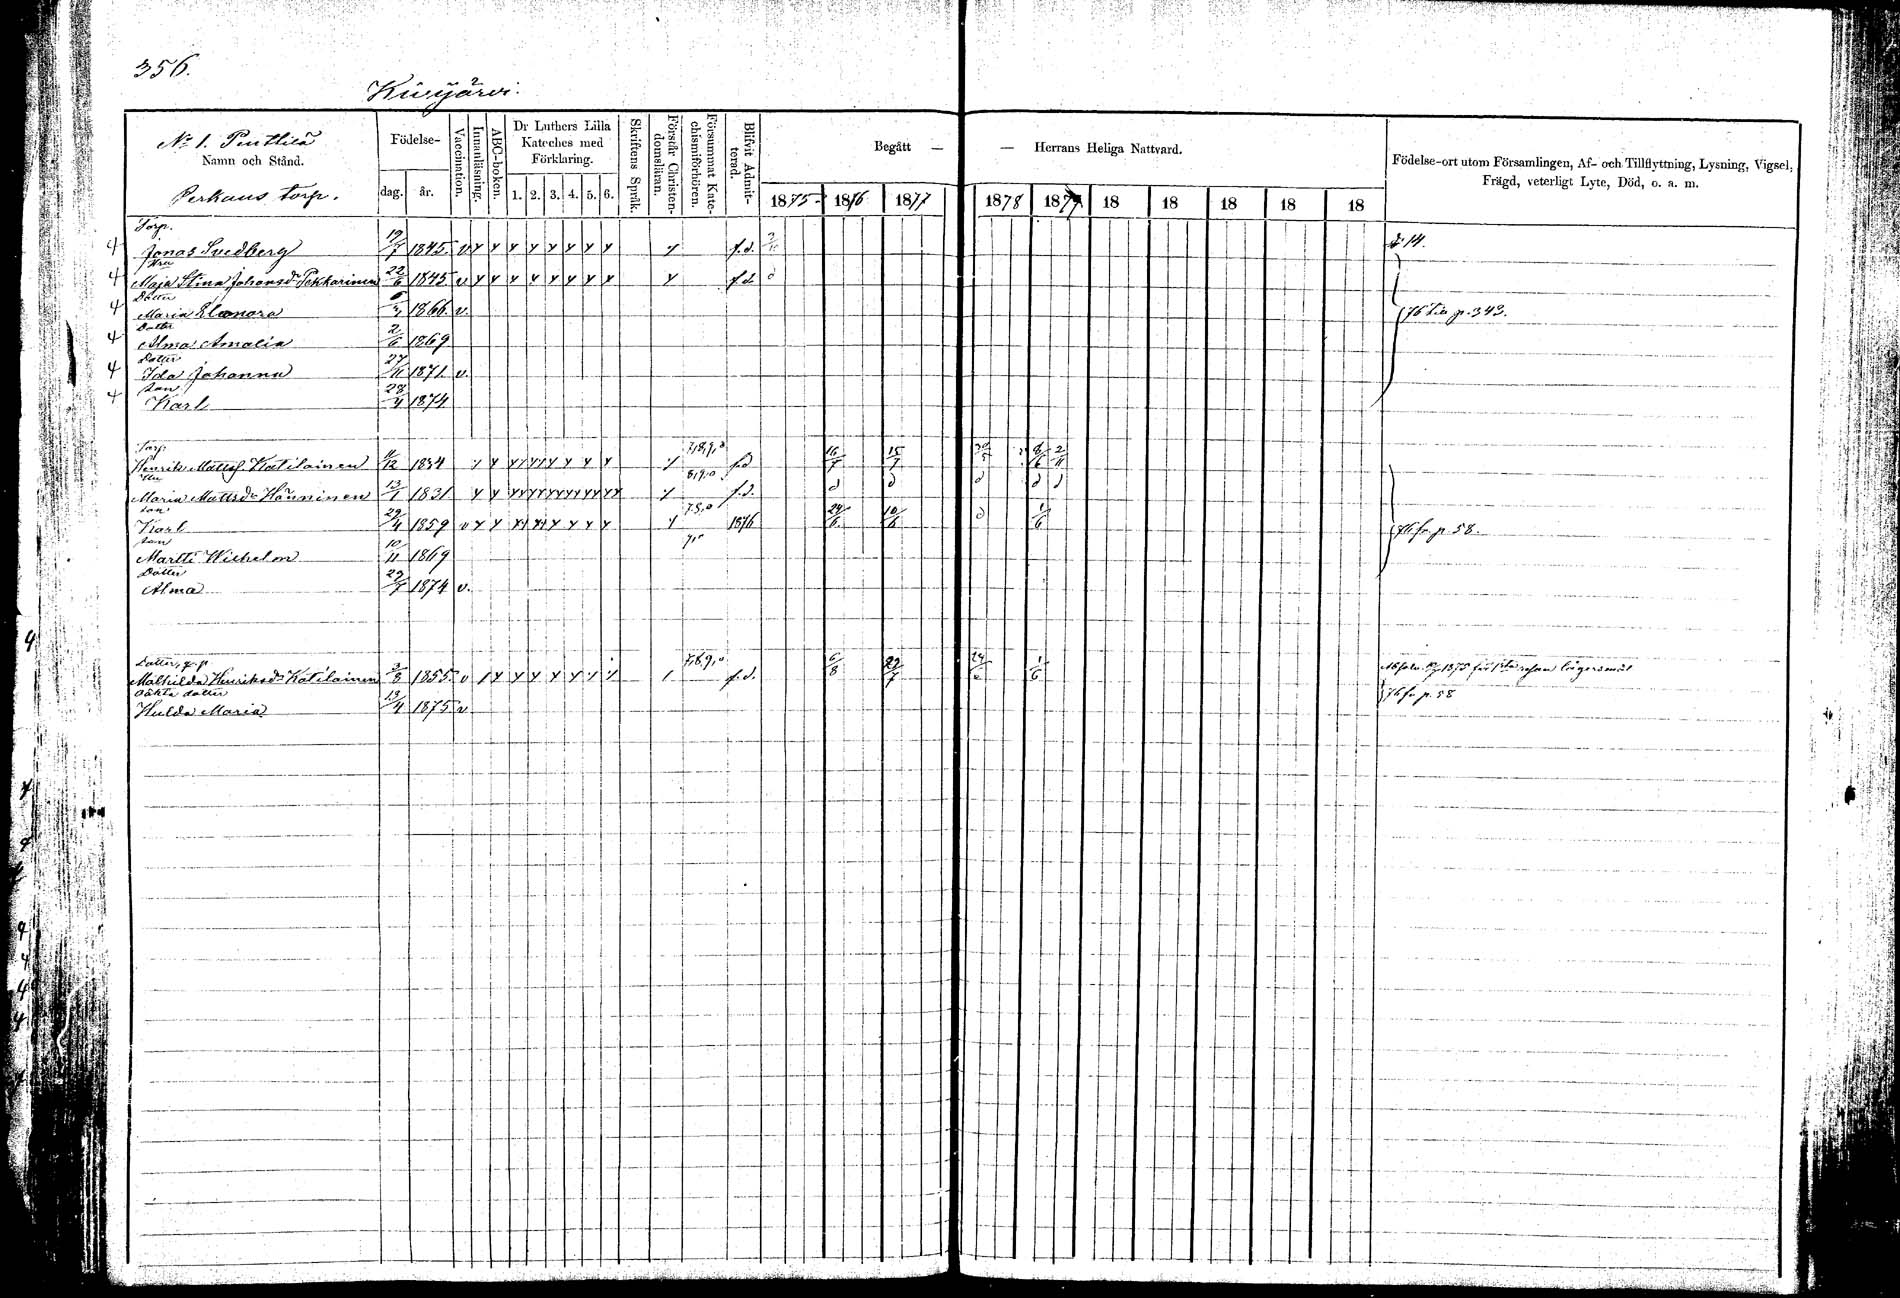 356.
Kuvjärvi.
No 1. Penttilä
Namn och Stånd.
Perkaus torp.
Födelse-
dag. år.
Vaccination.
Innanläsning.
ABC-boken.
Dr Luthers Lilla Kateches med Förklaring.
1. 2. 3. 4. 5. 6.
Skriftens Språk.
Förstår Christendomsläran.
Försummat Katechismiförhören.
Blifvit Admitterad.
Begått — — Herrans Heliga Nattvard.
1875 1876 1877 1878 1879 18 18 18 18 18
Födelse-ort utom Församlingen, Af- och Tillflyttning, Lysning, Vigsel,
Frägd, veterligt Lyte, Död, o. a. m.
Torp.
Jonas Svedberg 19/7 1845. v f.d. 14.
Hu
Maja Stina Johansdr Pekkarinen 22/6 1845 v f.d.
Dotter
Maria Eleonora 1866. v. 76 till p. 343.
Dotter
Alma Amalia 2/6 1869
Dotter
Ida Johanna 27/11 1871. v.
Son
Karl 28/4 1874
Torp.
Henrik Mattsson Katilainen 1834 7,8,9,0 f.d 16/7 15/7 30/5 8/6 2/11
Hu
Maria Mattsdr Hänninen 13/1 1831 8,9,0 f.d.
son
Karl 29/4 1859 v 7,8,0 1876 24/6 10/6 1/6 76 fr. p. 58.
son
Martti Wilhelm 10/11 1869
Dotter
Alma 29/7 1874 v.
Dotter,
Mathilda Henriksdr Katilainen 3/8 1855. v 7,8,9,0 f.d. 6/8 29/7 1/6 1875 för 1sta resan lägersmål
Oäkta dotter 76 fr p. 58
Hulda Maria 13/4 1875. v